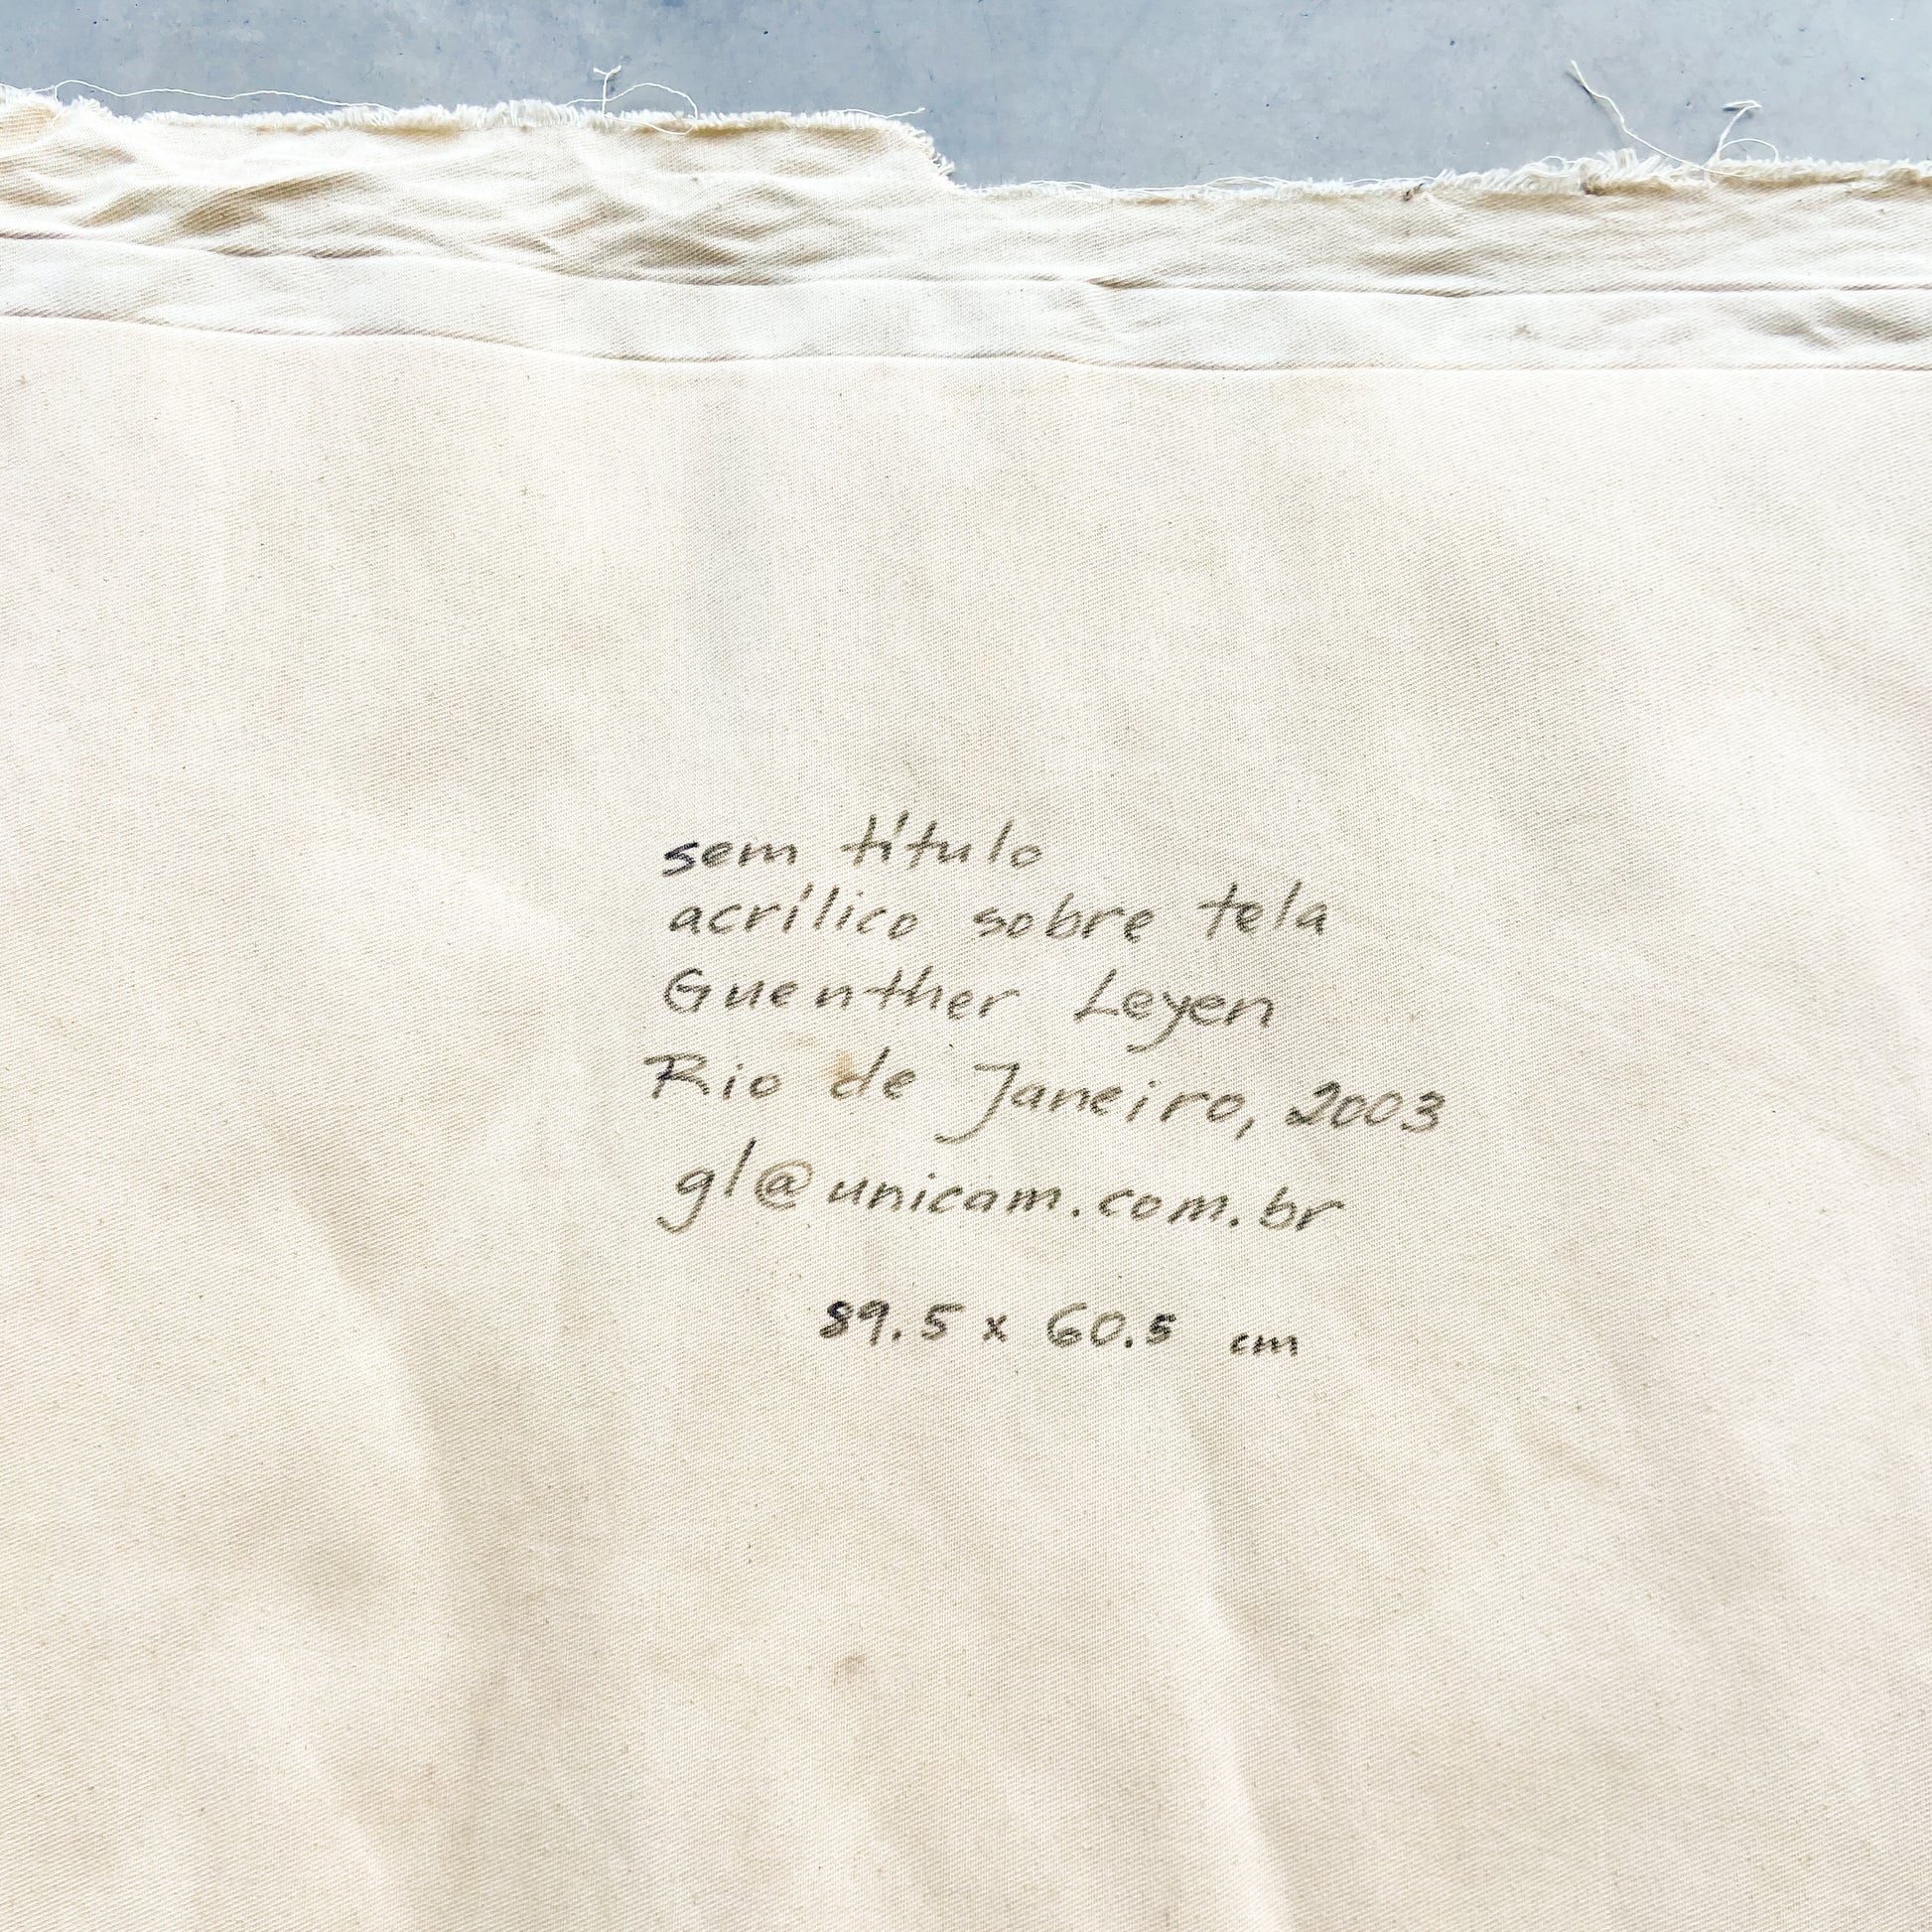 sem título
acrílico sobre tela
Guenther Leyen
Rio de Janeiro, 2003
gl@unicam.com.br
89.5 x 60.5 cm